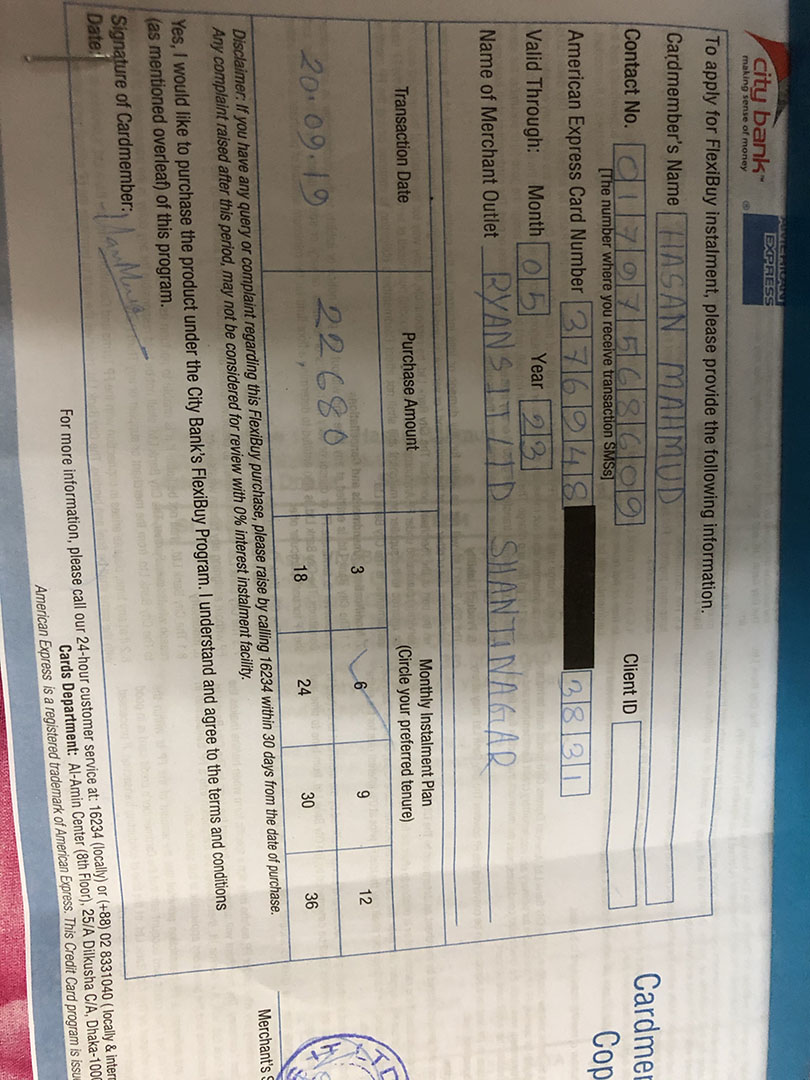 city bank™
making sense of money
AMERICAN EXPRESS ®
Cardmember
Copy
To apply for FlexiBuy instalment, please provide the following information.
Cardmember's Name HASAN MAHMUD
Contact No. 01797568609 Client ID
[The number where you receive transaction SMSs]
American Express Card Number 376948 3831
Valid Through: Month 05 Year 23
Name of Merchant Outlet RYANS IT LTD SHANTINAGAR
Transaction Date Purchase Amount Monthly Instalment Plan
(Circle your preferred tenure)
20.09.19 22680 3 6 9 12
18 24 30 36
Disclaimer: If you have any query or complaint regarding this FlexiBuy purchase, please raise by calling 16234 within 30 days from the date of purchase.
Any complaint raised after this period, may not be considered for review with 0% interest instalment facility.
Yes, I would like to purchase the product under the City Bank's FlexiBuy Program. I understand and agree to the terms and conditions
(as mentioned overleaf) of this program.
Signature of Cardmember:
Date:
Merchant's S
For more information, please call our 24-hour customer service at: 16234 (locally) or (+88) 02 8331040 (locally & intern
Cards Department: Al-Amin Center (8th Floor), 25/A Dilkusha C/A, Dhaka-1000
American Express is a registered trademark of American Express. This Credit Card program is issu